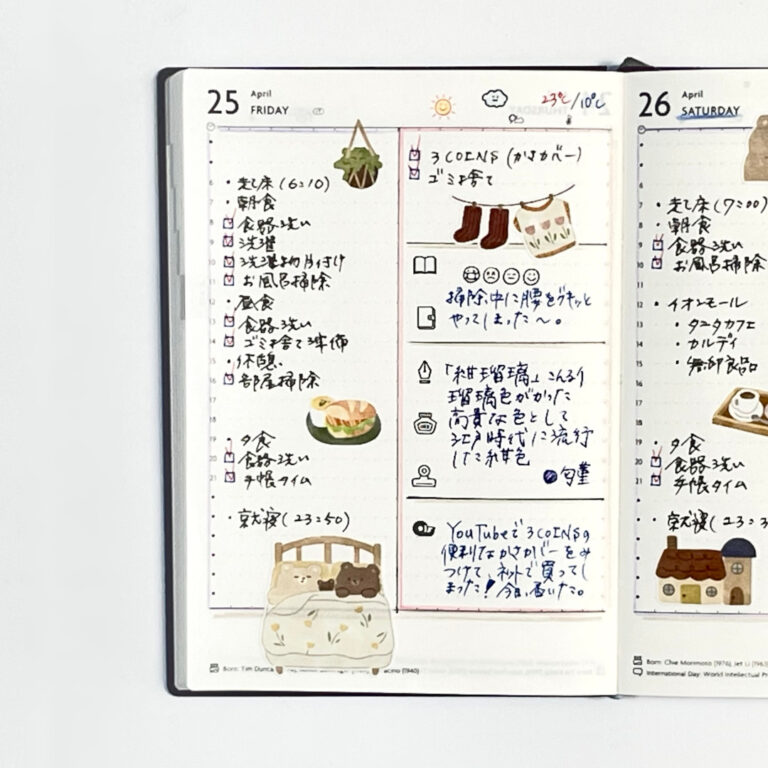 25 April
FRIDAY
23℃/10℃
・起床(6:10)
・朝食
食器洗い
洗濯
洗濯物片付け
お風呂掃除
・昼食
食器洗い
ゴミ捨て準備
・休憩
部屋掃除
・夕食
食器洗い
手帳タイム
・就寝(23:50)
3COINS(かさカバー)
ゴミ捨て
掃除中に腰をグキッと
やってしまった〜。
「紺瑠璃」こんるり
瑠璃色がかった
高貴な色として
江戸時代に流行
した紺色
YouTubeで3COINSの
便利なかさカバーをみ
つけて、ネットで買ってし
まった!今日、届いた。
Born: Tim Dunca
acino (1940)
26 April
SATURDAY
・起床(7:00)
・朝食
食器洗い
お風呂掃除
・イオンモール
・タニタカフェ
・カルディ
・無印良品
・夕食
食器洗い
手帳タイム
・就寝(23:3
Born: Chie Morimoto (1976), Jet Li (1963
International Day: World Intellectual Pr